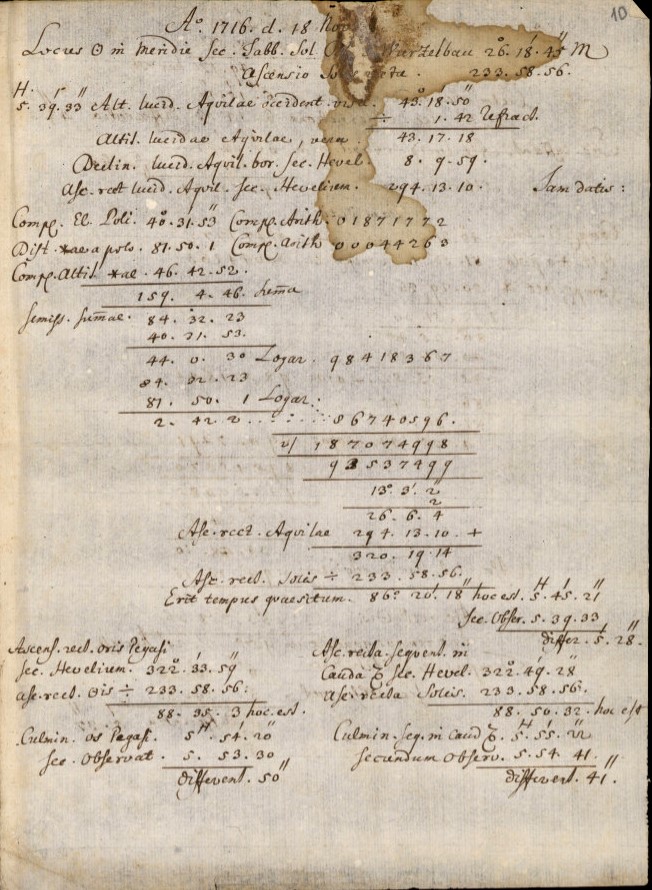 10
Aº. 1716. d. 18 Nov
Locus ☉ in Meridie sec. Tabb. Sol. Wurzelbau 26.° 18.' 45'' ♏
Ascensio recta. 233. 58. 56.
H. 5. 39.' 33'' Alt. lucid. Aquilae occident. visa. 43.° 18.' 50''
÷ 1. 42 Refract.
Altit. lucidae Aquilae, vera 43. 17. 18
Declin. lucid. Aquil. bor. sec. Hevel 8. 9. 59.
Asc. rect lucid. Aquil. sec. Hevelium. 294. 13. 10. Iam datis:
Comp. El. Poli. 40.° 31.' 53'' Comp. Arith. 0 1 8 7 1 7 7 2
Dist. *ae a polo. 81. 50. 1 Comp. Arith 0 0 0 4 4 2 6 3
Comp. Altit. *ae. 46. 42. 52.
159. 4. 46. Summa
Semiss. Summae. 84. 32. 23
40. 31. 53.
44. 0. 30 Logar. 9 8 4 1 8 3 6 7
84. 32. 23
81. 50. 1 Logar:
2. 42. 2 . . . . . . 8 6 7 4 0 5 9 6.
2/ 1 8 7 0 7 4 9 9 8
9 3 5 3 7 4 9 9
13.° 3.' 2''
2
26. 6. 4
Asc. rect. Aquilae 294. 13. 10. +
320. 19. 14
Asc. rect. Solis ÷ 233. 58. 56.
Erit tempus quaesitum. 86.° 20.' 18'' hoc est. 5.H 45.' 21''
Sec. Obser. 5. 39. 33
differ. 5.' 28.''
Ascens. rect. oris Pegasi
Sec. Hevelium. 322.° 33.' 59''
Asc. rect. ☉is ÷ 233. 58. 56:
88. 35. 3 hoc est.
Culmin. os Pegasi. 5.H 54.' 20''
Sec. Observat. 5. 53. 30
different. 50''
Asc. recta sequent. in
Cauda ♑ sec. Hevel. 322.° 49.' 28''
Asc. recta Solis. 233. 58. 56.
88. 50. 32. hoc est
Culmin. seq. in Caud ♑. 5.H 55.' 22''
Secundum Observ. 5. 54. 41.
different. 41.''